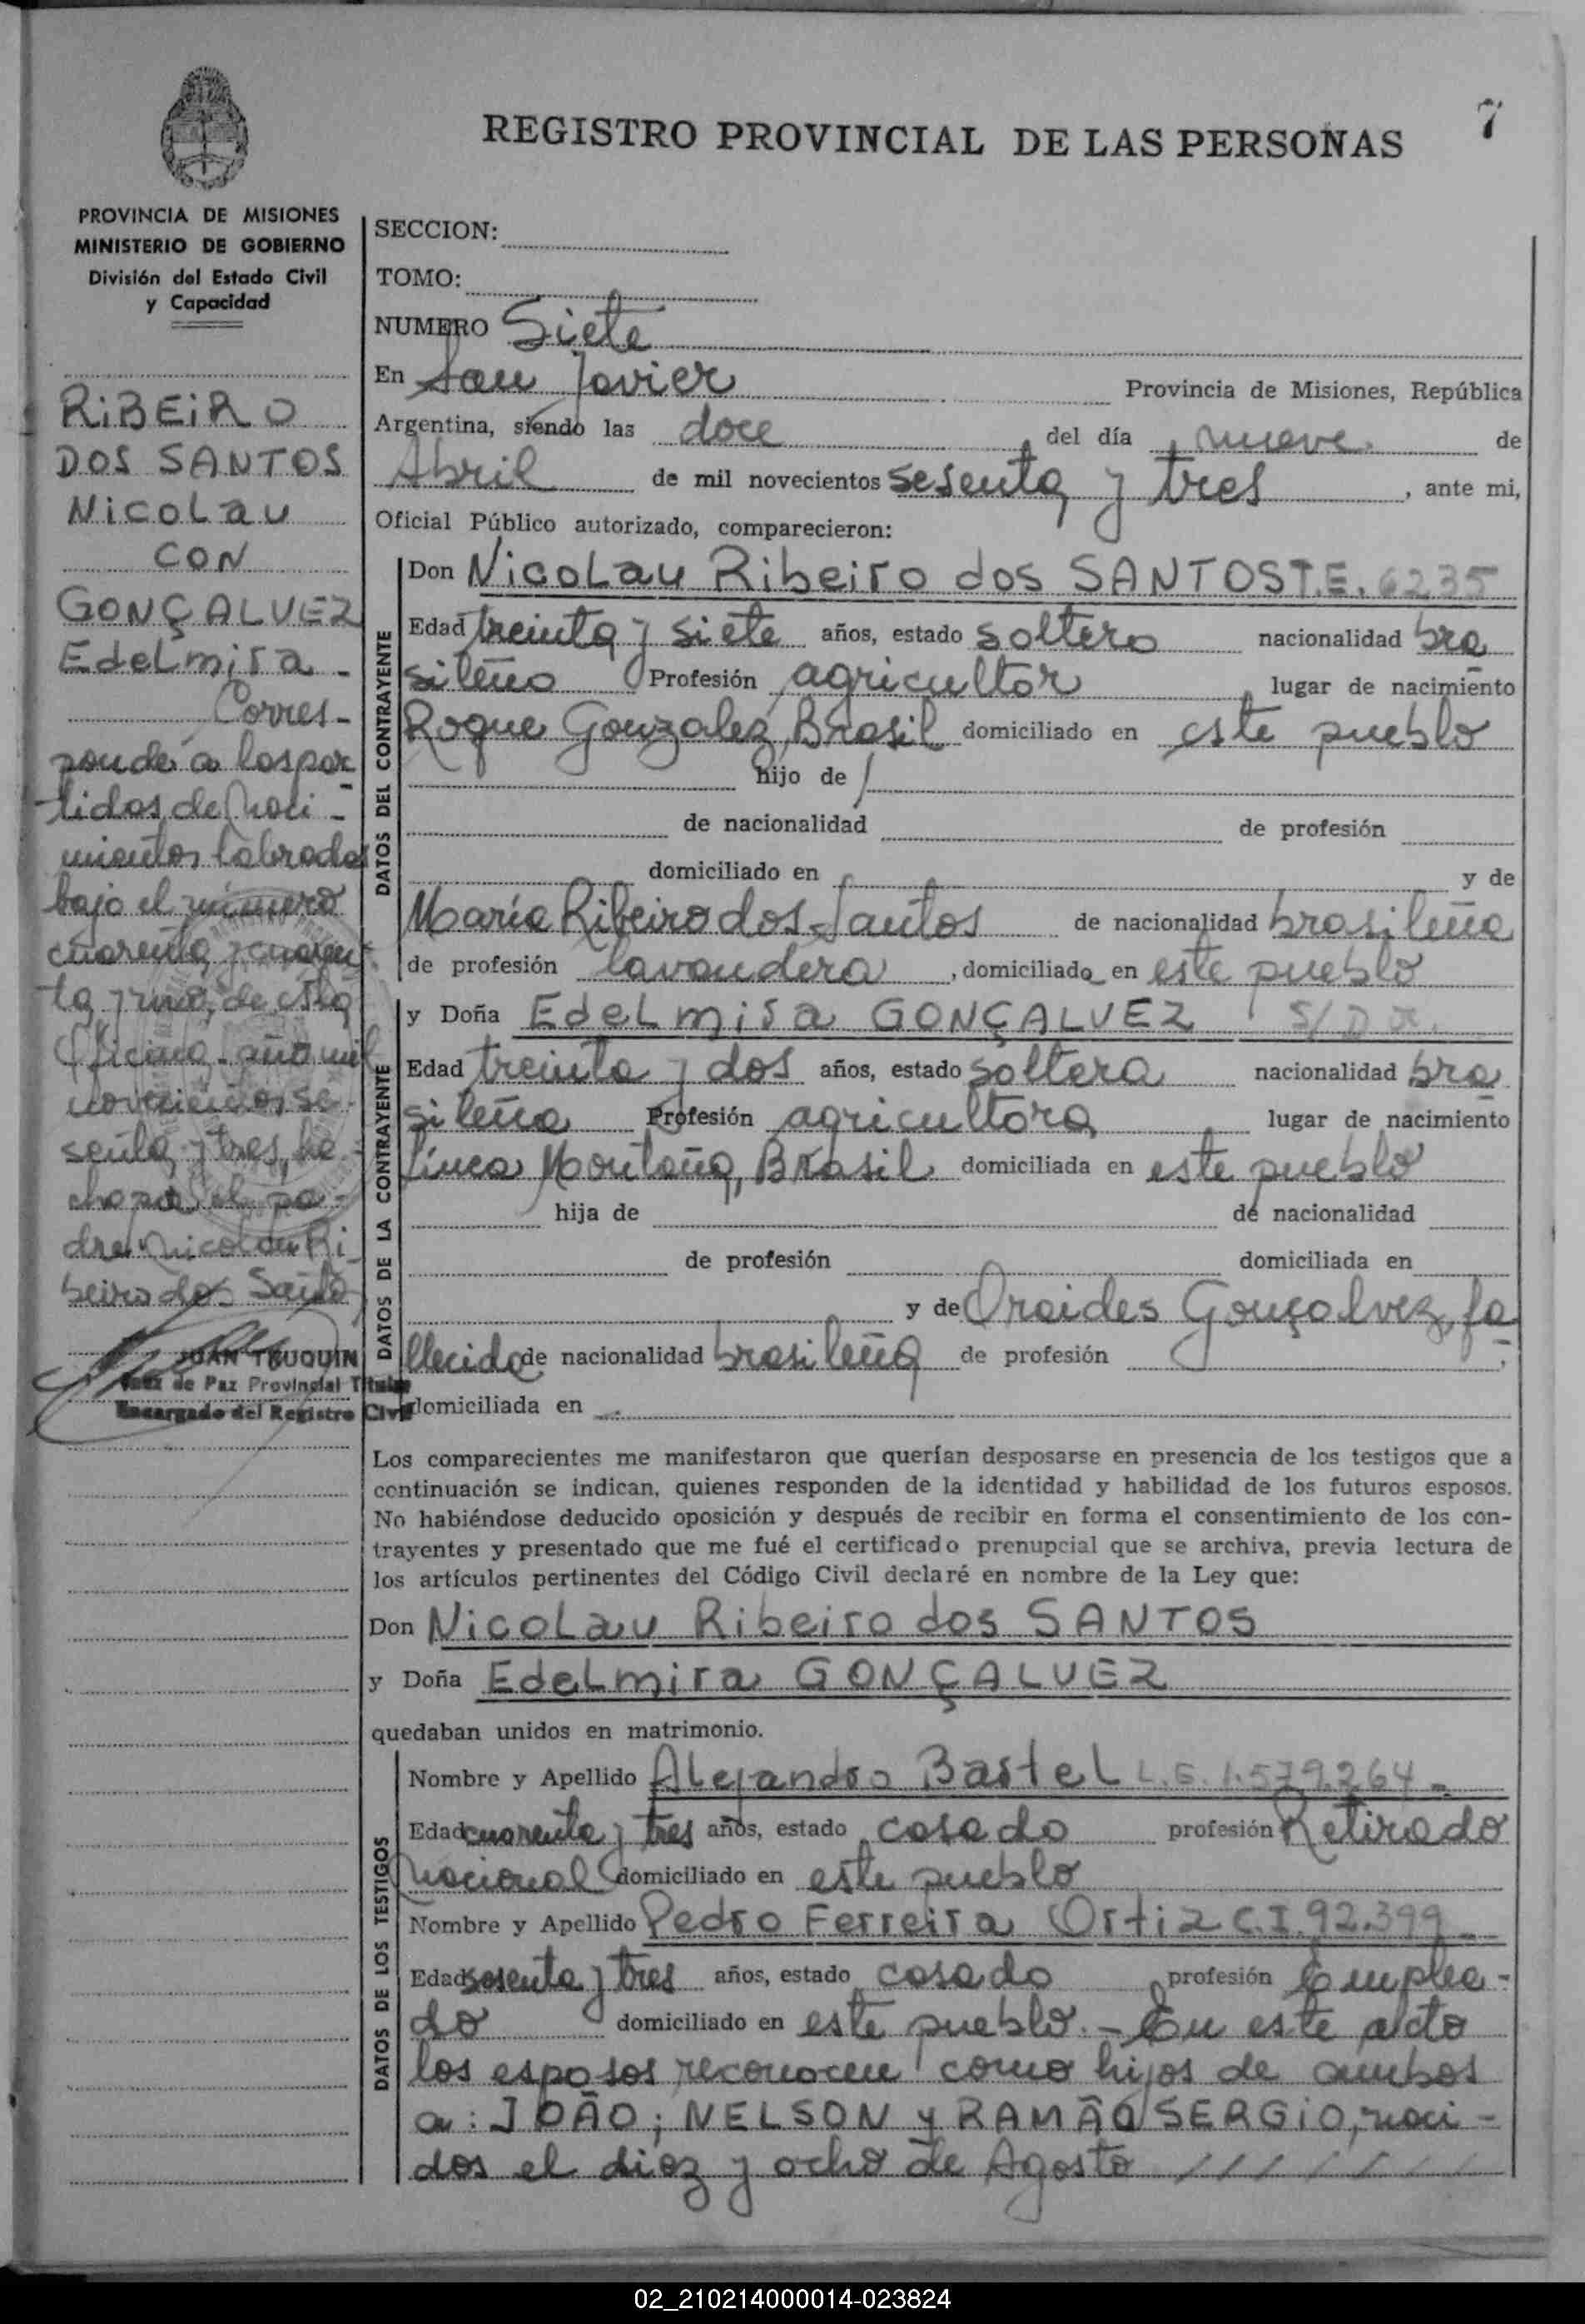 REGISTRO PROVINCIAL DE LAS PERSONAS
7
PROVINCIA DE MISIONES
MINISTERIO DE GOBIERNO
División del Estado Civil
y Capacidad
RiBEiRO
DOS SANTOS
NicoLau
CON
GONÇALVEZ
EdeLmira -
Corres-
ponde a las par
tidas de Naci-
mientos labradas
bajo el número
cuarenta y cuaren
ta y uno, de esta
Oficina año mil
novecientos se-
senta y tres, he-
cha por el pa-
dre Nicolau Ri
beiro dos Santos
JUAN TRUQUIN
Juez de Paz Provincial Titular
Encargado del Registro Civil
SECCION:
TOMO:
NUMERO Siete
En San Javier Provincia de Misiones, República
Argentina, siendo las doce del día nueve de
Abril de mil novecientos sesenta y tres, ante mi,
Oficial Público autorizado, comparecieron:
DATOS DEL CONTRAYENTE
Don NicoLau Ribeiro dos SANTOS T.E. 6235
Edad treinta y siete años, estado soltero nacionalidad bra
sileño Profesión agricultor lugar de nacimiento
Roque Gonzalez, Brasil domiciliado en este pueblo
hijo de /
de nacionalidad de profesión
domiciliado en y de
María Ribeiro dos Santos de nacionalidad brasileña
de profesión lavandera, domiciliada en este pueblo
DATOS DE LA CONTRAYENTE
y Doña EdeLmira GONÇALVEZ S/D
Edad treinta y dos años, estado soltera nacionalidad bra
sileña Profesión agricultora lugar de nacimiento
Línea Montaña, Brasil domiciliada en este pueblo
hija de de nacionalidad
de profesión domiciliada en
y de Oraides Gonçalvez, fa
llecida de nacionalidad brasileña de profesión
domiciliada en
Los comparecientes me manifestaron que querían desposarse en presencia de los testigos que a
continuación se indican, quienes responden de la identidad y habilidad de los futuros esposos.
No habiéndose deducido oposición y después de recibir en forma el consentimiento de los con-
trayentes y presentado que me fué el certificado prenupcial que se archiva, previa lectura de
los artículos pertinentes del Código Civil declaré en nombre de la Ley que:
Don NicoLau Ribeiro dos SANTOS
y Doña EdeLmira GONÇALVEZ
quedaban unidos en matrimonio.
DATOS DE LOS TESTIGOS
Nombre y Apellido Alejandro BasteL L.E. 1.579.264 -
Edad cuarenta y tres años, estado casado profesión Retirado
Nacional domiciliado en este pueblo
Nombre y Apellido Pedro Ferreira Ortiz C.I. 92.399
Edad sesenta y tres años, estado casado profesión Emplea-
do domiciliado en este pueblo. - En este acto
los esposos reconocen como hijos de ambos
a: JOÃO; NELSON y RAMÃO SERGiO, naci-
dos el diez y ocho de Agosto / / / / / / /
02_210214000014-023824